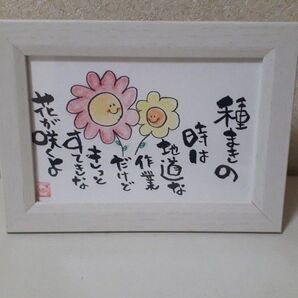 種まきの
時は
地道な
作業
だけど
きっと
すてきな
花が咲くよ